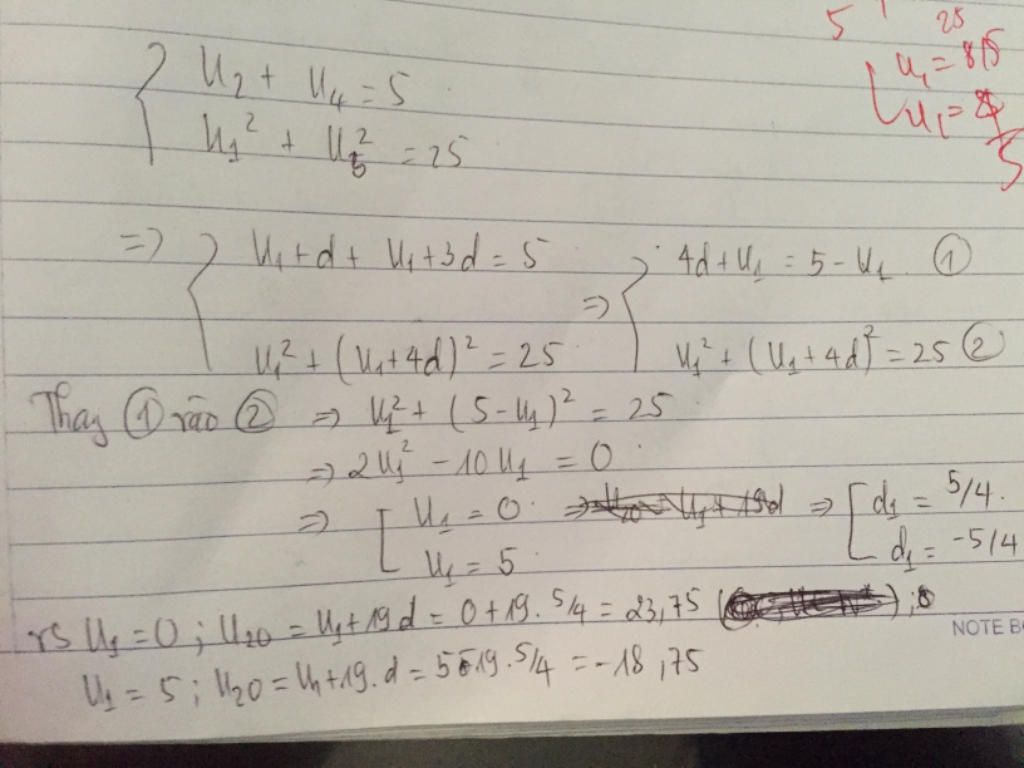 5 25
u₁ = 8,5
u₁ =
5
U₂ + U₄ = 5
U₁² + U₅² = 25
=> U₁+d + U₁+3d = 5
4d+U₁ = 5 - U₁ ①
=>
U₁² + (U₁+4d)² = 25
U₁² + (U₁+4d)² = 25 ②
Thay ① vào ② => U₁² + (5-U₁)² = 25
=> 2U₁² - 10U₁ = 0
=> [ U₁ = 0 => [ d₁ = 5/4.
U₁ = 5 d₁ = -5/4
rs U₁ = 0 ; U₂₀ = U₁+19d = 0+19. 5/4 = 23,75
NOTE
U₁ = 5 ; U₂₀ = U₁+19.d = 5-19. 5/4 = -18,75